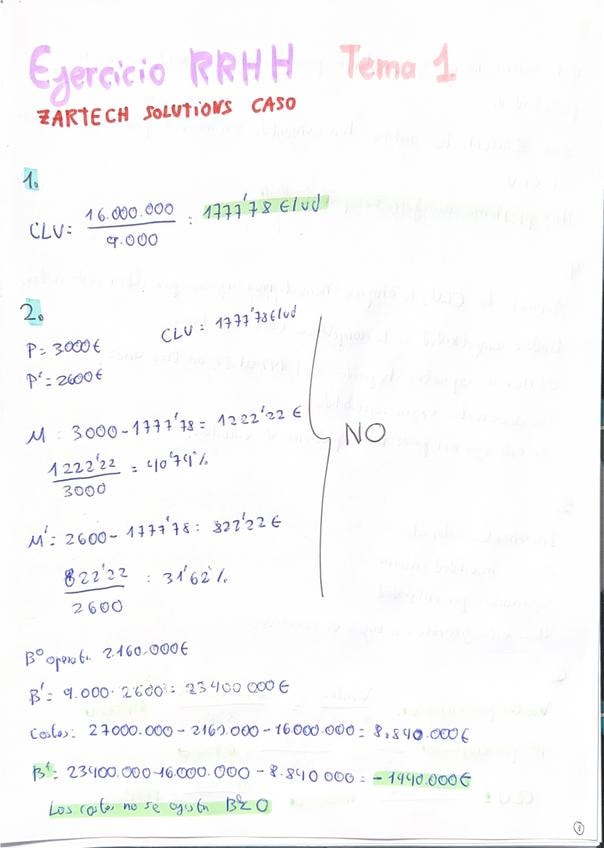 Ejercicio RRHH Tema 1
ZARTECH SOLUTIONS CASO
1.
CLV= 16.000.000 / 9.000 : 1777'78 €/ud
2.
P= 3000€
CLV: 1777'78€/ud
P'= 2600€
M: 3000-1777'78= 1222'22 €
1222'22 / 3000 = 40'74%
NO
M': 2600-1777'78: 822'22€
822'22 / 2600 : 31'62%
Bº operati. 2.160.000€
B': 9.000 · 2600: 23400 000€
Costes: 27000.000-2160.000-16000.000= 8.840.000€
B': 23400.000-16.000.000-8.840 000= -1440.000€
Los costes no se ajusta Bº<0
1